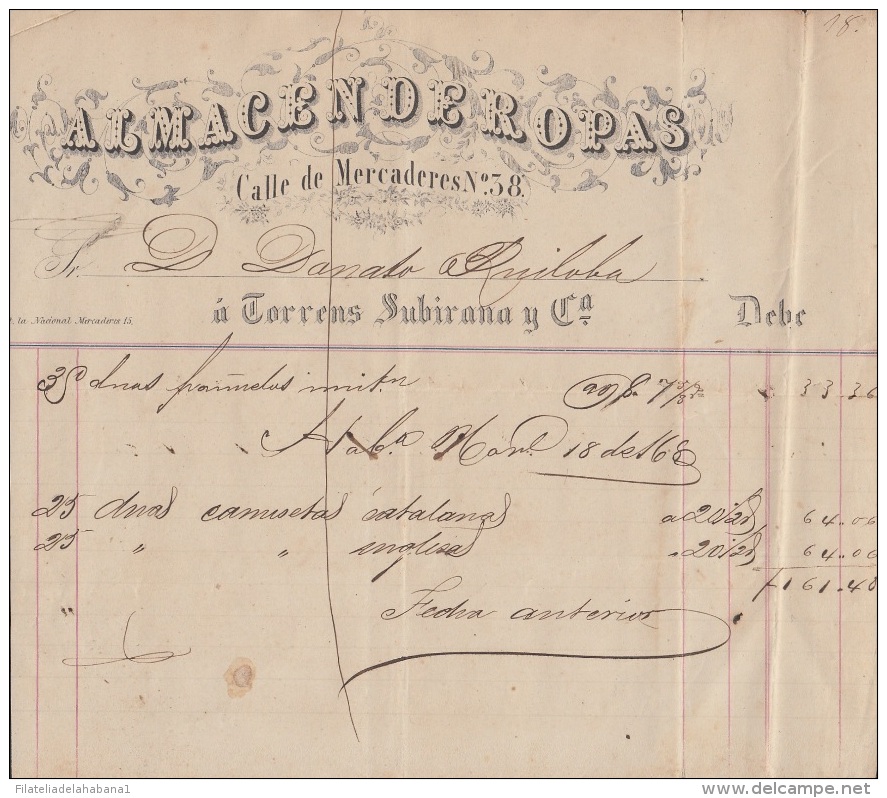 18
ALMACEN DE ROPAS
Calle de Mercaderes Nº 38.
Sr. D Donato Ruiloba
la Nacional Mercaderes 15.
á Torrens Subirana y Cª Debe
dnas pañuelos 33.36
Habª Nov. 18 de 168
25 dnas camisetas catalanas a 20½ 64.06
25 " " inglesas " 20½ 64.06
161.48
" Fecha anterior
Filateliadelahabana1
delcampe.net